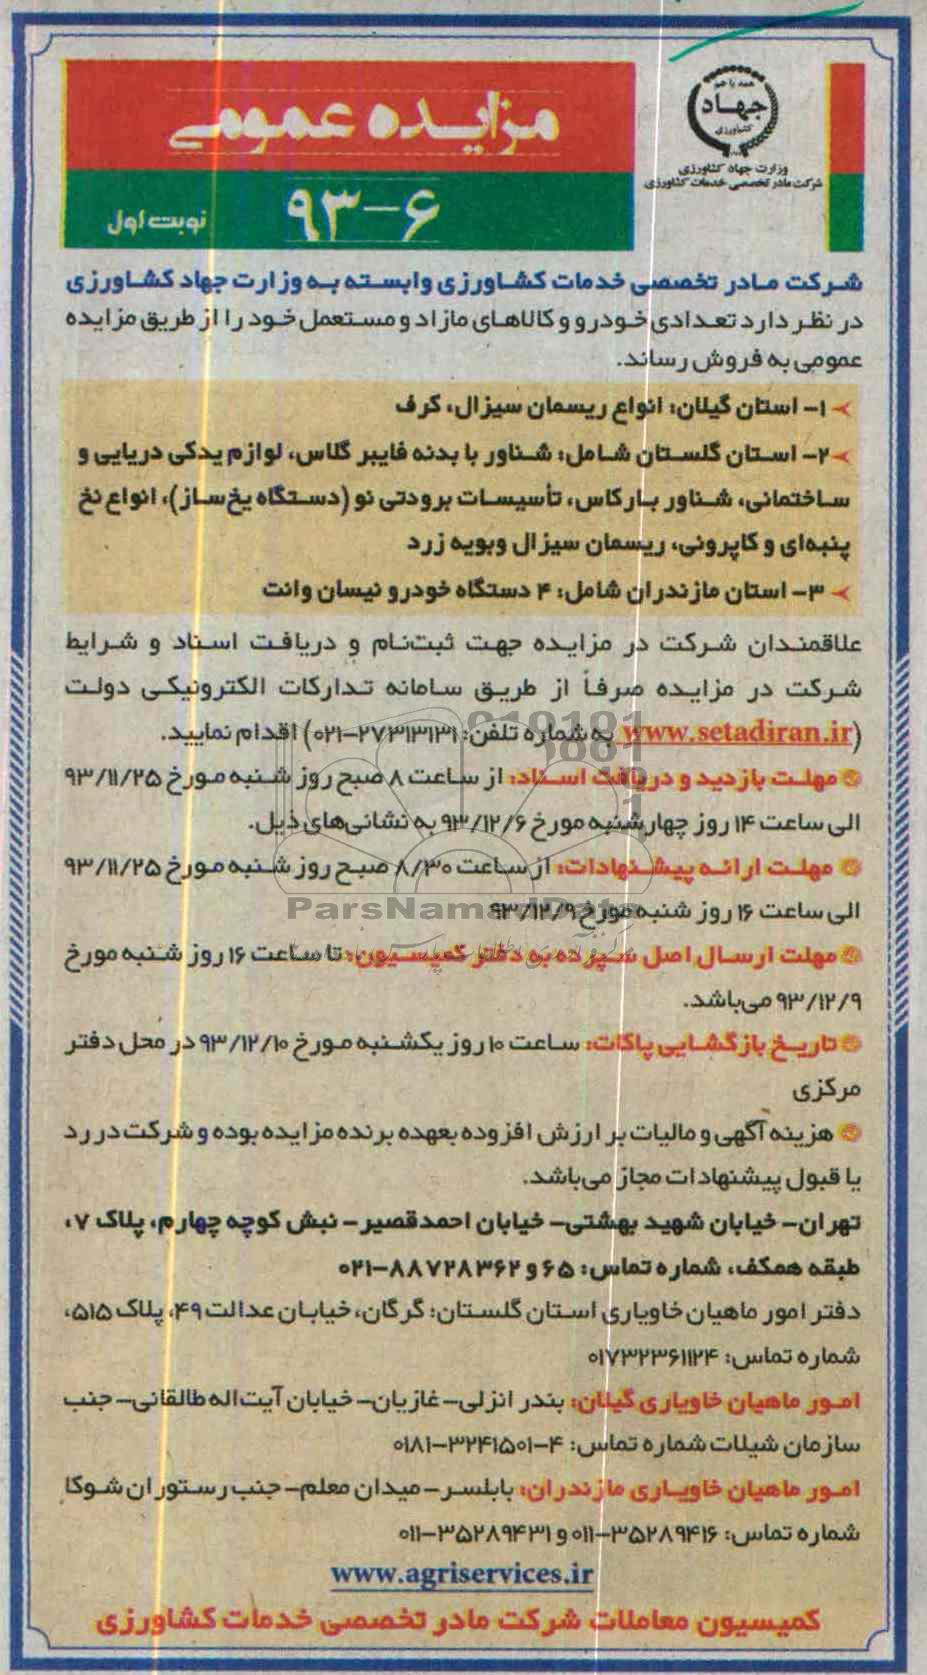 همه با هم
جهاد
کشاورزی
وزارت جهاد کشاورزی
شرکت مادر تخصصی خدمات کشاورزی
مزایده عمومی
۹۳-۶
نوبت اول
شرکت مادر تخصصی خدمات کشاورزی وابسته به وزارت جهاد کشاورزی
در نظر دارد تعدادی خودرو و کالاهای مازاد و مستعمل خود را از طریق مزایده
عمومی به فروش رساند.
۱- استان گیلان: انواع ریسمان سیزال، کرف
۲- استان گلستان شامل: شناور با بدنه فایبر گلاس، لوازم یدکی دریایی و
ساختمانی، شناور بارکاس، تأسیسات برودتی نو (دستگاه یخ‌ساز)، انواع نخ
پنبه‌ای و کاپرونی، ریسمان سیزال وبویه زرد
۳- استان مازندران شامل: ۴ دستگاه خودرو نیسان وانت
علاقمندان شرکت در مزایده جهت ثبت‌نام و دریافت اسناد و شرایط
شرکت در مزایده صرفاً از طریق سامانه تدارکات الکترونیکی دولت
(www.setadiran.ir به شماره تلفن: ۲۷۳۱۳۱۳۱-۰۲۱) اقدام نمایید.
مهلت بازدید و دریافت اسناد: از ساعت ۸ صبح روز شنبه مورخ ۹۳/۱۱/۲۵
الی ساعت ۱۴ روز چهارشنبه مورخ ۹۳/۱۲/۶ به نشانی‌های ذیل.
مهلت ارائه پیشنهادات: از ساعت ۸/۳۰ صبح روز شنبه مورخ ۹۳/۱۱/۲۵
الی ساعت ۱۶ روز شنبه مورخ ۹۳/۱۲/۹
ParsNamadData
مهلت ارسال اصل سپرده به دفتر کمیسیون: تا ساعت ۱۶ روز شنبه مورخ
۹۳/۱۲/۹ می‌باشد.
تاریخ بازگشایی پاکات: ساعت ۱۰ روز یکشنبه مورخ ۹۳/۱۲/۱۰ در محل دفتر
مرکزی
هزینه آگهی و مالیات بر ارزش افزوده بعهده برنده مزایده بوده و شرکت در رد
یا قبول پیشنهادات مجاز می‌باشد.
تهران- خیابان شهید بهشتی- خیابان احمدقصیر- نبش کوچه چهارم، پلاک ۷،
طبقه همکف، شماره تماس: ۶۵ و ۸۸۷۲۸۳۶۲-۰۲۱
دفتر امور ماهیان خاویاری استان گلستان: گرگان، خیابان عدالت ۴۹، پلاک ۵۱۵،
شماره تماس: ۰۱۷۳۲۳۶۱۱۲۴
امور ماهیان خاویاری گیلان: بندر انزلی- غازیان- خیابان آیت‌اله طالقانی- جنب
سازمان شیلات شماره تماس: ۴-۳۲۴۱۵۰۱-۰۱۸۱
امور ماهیان خاویاری مازندران: بابلسر- میدان معلم- جنب رستوران شوکا
شماره تماس: ۳۵۲۸۹۴۱۶-۰۱۱ و ۳۵۲۸۹۴۳۱-۰۱۱
www.agriservices.ir
کمیسیون معاملات شرکت مادر تخصصی خدمات کشاورزی